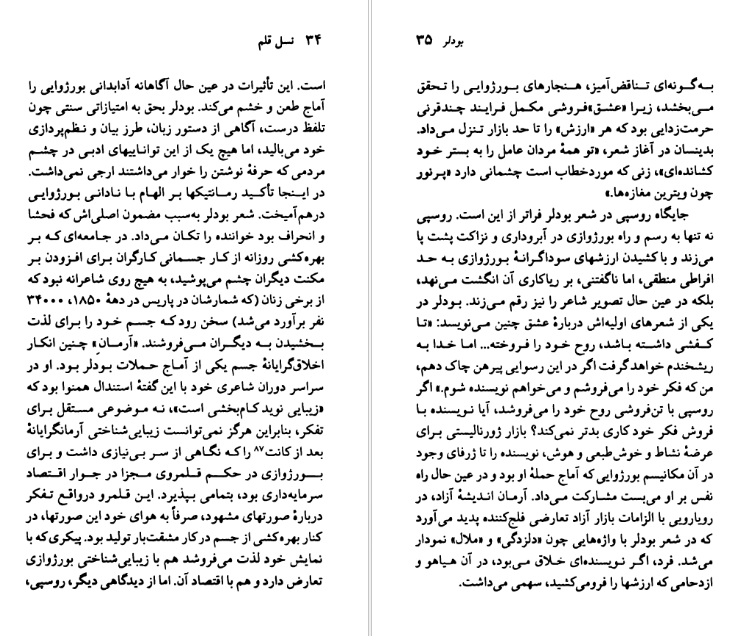 ۳۴ نسل قلم
است. این تأثیرات در عین حال آگاهانه آدابدانی بورژوایی را
آماج طعن و خشم می‌کند. بودلر بحق به امتیازاتی سنتی چون
تلفظ درست، آگاهی از دستور زبان، طرز بیان و نظم‌پردازی
خود می‌بالید، اما هیچ یک از این تواناییهای ادبی در چشم
مردمی که حرفهٔ نوشتن را خوار می‌داشتند ارجی نمی‌داشت.
در اینجا تأکید رمانتیکها بر الهام با نادانی بورژوایی
درهم‌آمیخت. شعر بودلر به‌سبب مضمون اصلی‌اش که فحشا
و انحراف بود خواننده را تکان می‌داد. در جامعه‌ای که بر
بهره‌کشی روزانه از کار جسمانی کارگران برای افزودن بر
مکنت دیگران چشم می‌پوشید، به هیچ روی شاعرانه نبود که
از برخی زنان (که شمارشان در پاریس در دههٔ ۱۸۵۰، ۳۴۰۰۰
نفر برآورد می‌شد) سخن رود که جسم خود را برای لذت
بخشیدن به دیگران می‌فروشند. «آرمانِ» چنین انکار
اخلاق‌گرایانهٔ جسم یکی از آماج حملات بودلر بود. او در
سراسر دوران شاعری خود با این گفتهٔ استندال همنوا بود که
«زیبایی نوید کام‌بخشی است»، نه موضوعی مستقل برای
تفکر، بنابراین هرگز نمی‌توانست زیبایی‌شناختی آرمانگرایانهٔ
بعد از کانت۸۷ را که نگاهی از سر بی‌نیازی داشت و برای
بورژوازی در حکم قلمروی مجزا در جوار اقتصاد
سرمایه‌داری بود، بتمامی بپذیرد. این قلمرو درواقع تفکر
دربارهٔ صورتهای مشهود، صرفاً به هوای خود این صورتها، در
کنار بهره‌کشی از جسم در کار مشقت‌بار تولید بود. پیکری که با
نمایش خود لذت می‌فروشد هم با زیبایی‌شناختی بورژوازی
تعارض دارد و هم با اقتصاد آن. اما از دیدگاهی دیگر، روسپی،
بودلر ۳۵
به‌گونه‌ای تناقض‌آمیز، هنجارهای بورژوایی را تحقق
می‌بخشد، زیرا «عشق»فروشی مکمل فرایند چندقرنی
حرمت‌زدایی بود که هر «ارزش» را تا حد بازار تنزل می‌داد.
بدینسان در آغاز شعر، «تو همهٔ مردان عامل را به بستر خود
کشانده‌ای»، زنی که موردخطاب است چشمانی دارد «پرنور
چون ویترین مغازه‌ها.»
جایگاه روسپی در شعر بودلر فراتر از این است. روسپی
نه تنها به رسم و راه بورژوازی در آبروداری و نزاکت پشت پا
می‌زند و با کشیدن ارزشهای سوداگرانهٔ بورژوازی به حد
افراطی منطقی، اما ناگفتنی، بر ریاکاری آن انگشت می‌نهد،
بلکه در عین حال تصویر شاعر را نیز رقم می‌زند. بودلر در
یکی از شعرهای اولیه‌اش دربارهٔ عشق چنین می‌نویسد: «تا
کفشی داشته باشد، روح خود را فروخته... اما خدا به
ریشخندم خواهد گرفت اگر در این رسوایی پیرهن چاک دهم،
من که فکر خود را می‌فروشم و می‌خواهم نویسنده شوم.» اگر
روسپی با تن‌فروشی روح خود را می‌فروشد، آیا نویسنده با
فروش فکر خود کاری بدتر نمی‌کند؟ بازار ژورنالیستی برای
عرضهٔ نشاط و خوش‌طبعی و هوش، نویسنده را تا ژرفای وجود
در آن مکانیسم بورژوایی که آماج حملهٔ او بود و در عین حال راه
نفس بر او می‌بست مشارکت می‌داد. آرمان اندیشهٔ آزاد، در
رویارویی با الزامات بازار آزاد تعارضی فلج‌کننده پدید می‌آورد
که در شعر بودلر با واژه‌هایی چون «دلزدگی» و «ملال» نمودار
می‌شد. فرد، اگر نویسنده‌ای خلاق می‌بود، در آن هیاهو و
ازدحامی که ارزشها را فرومی‌کشید، سهمی می‌داشت.